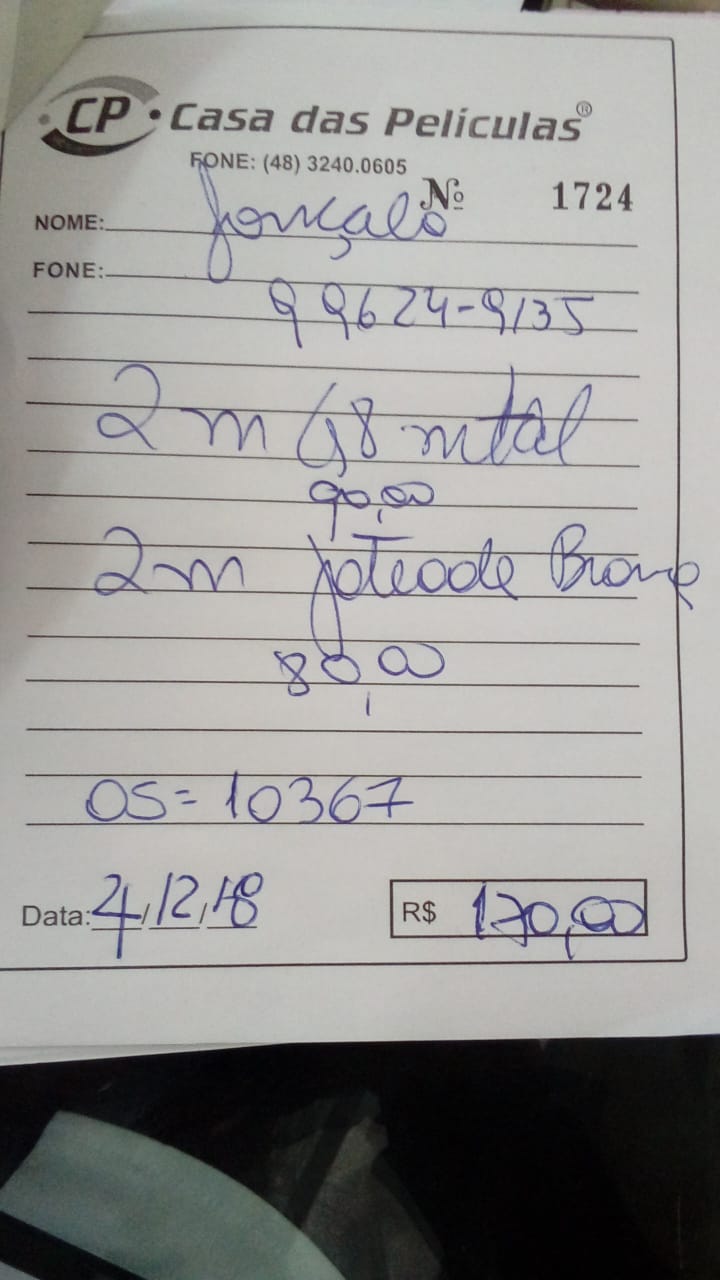 CP · Casa das Películas®
FONE: (48) 3240.0605
Nº 1724
NOME: Gonçalo
FONE:
99624-9135
2m G8 mtal
90,00
2m
80,00
OS= 10367
Data: 4/12/18 R$ 170,00